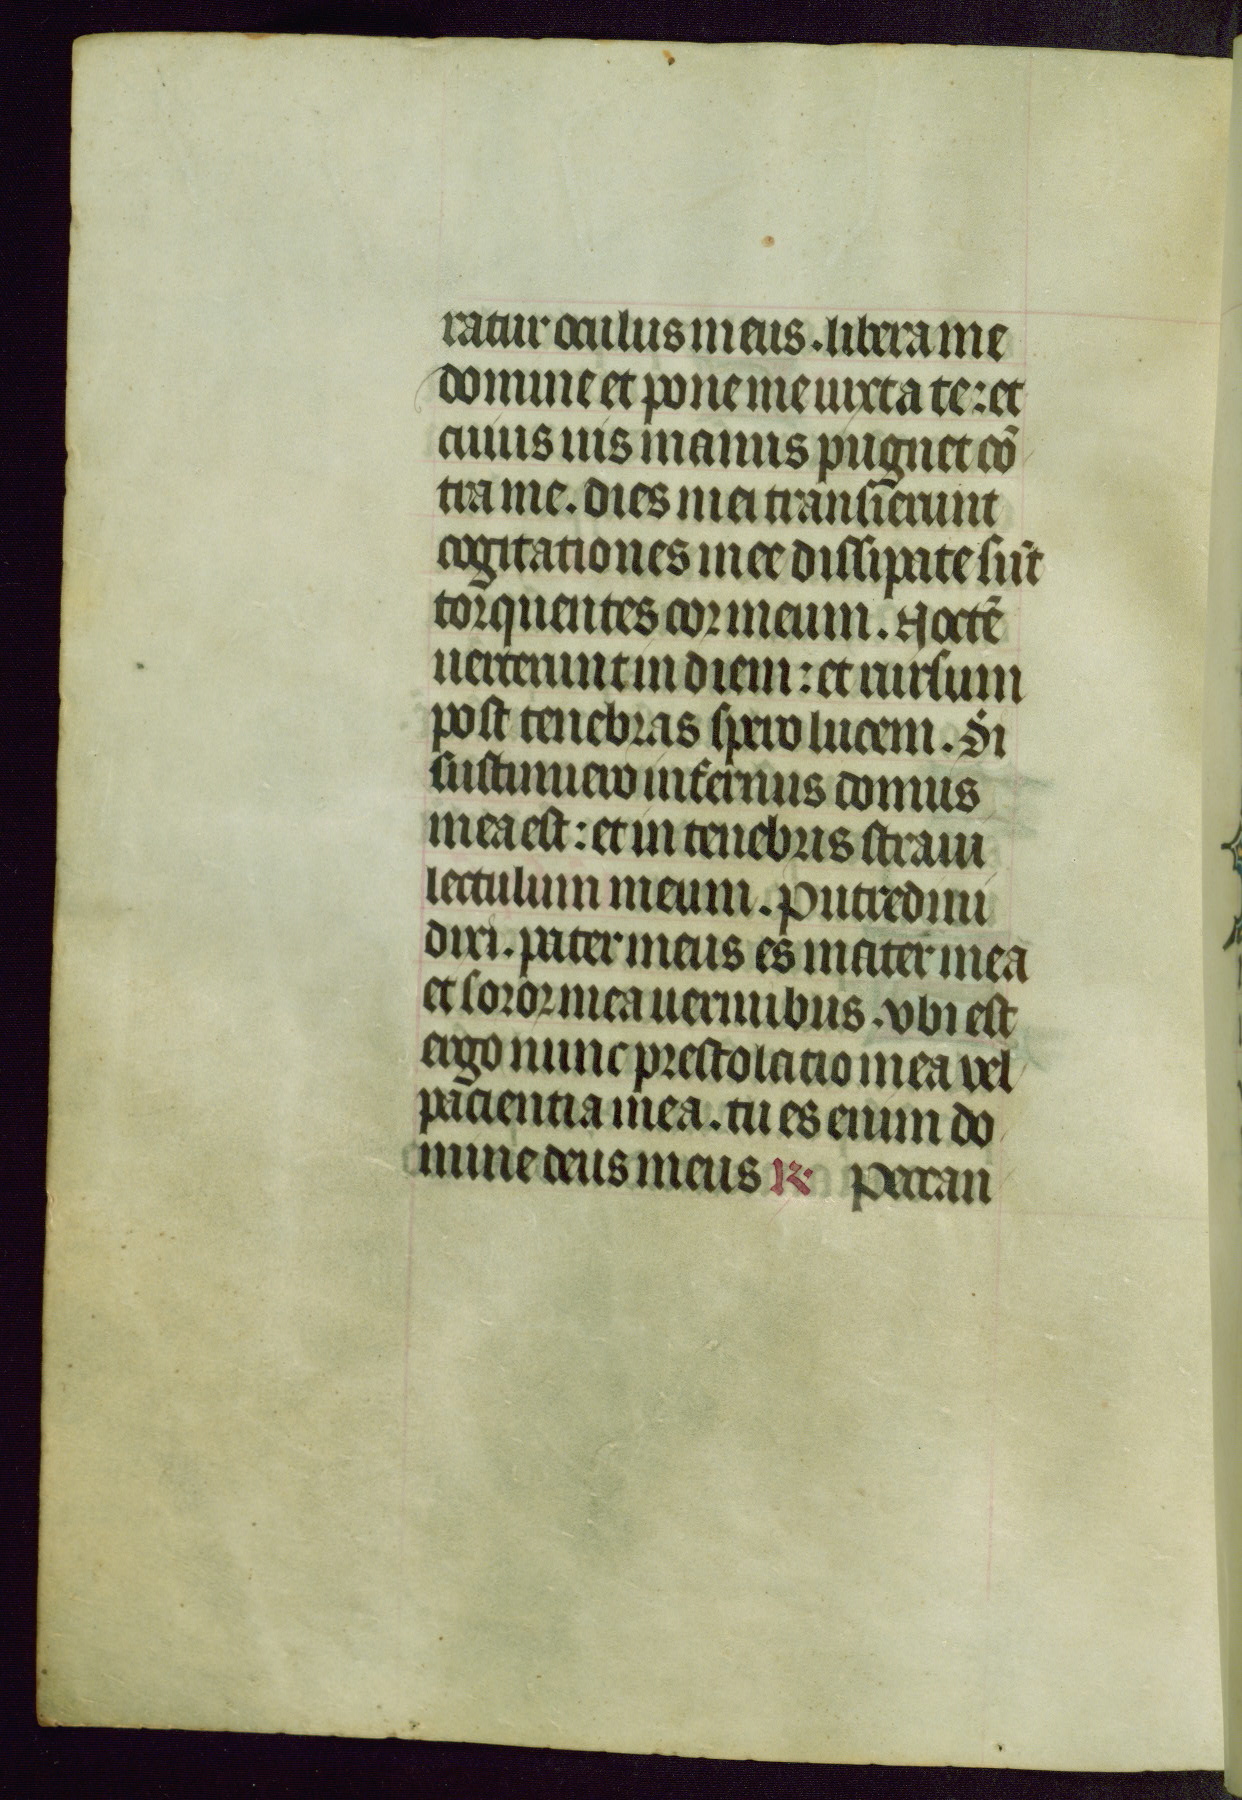 ratur oculus meus. libera me
domine et pone me iuxta te: et
cuius uis manus pugnet cō
tra me. dies mei transierunt
cogitationes mee dissipate sūt
torquentes cor meum. Noctē
uerterunt in diem: et rursum
post tenebras spero lucem. Si
sustinuero infernus domus
mea est: et in tenebris straui
lectulum meum. Putredini
dixi. pater meus es mater mea
et soror mea uermibus. vbi est
ergo nunc prestolatio mea vel
paciencia mea. tu es enim do
mine deus meus ℟ Peccan